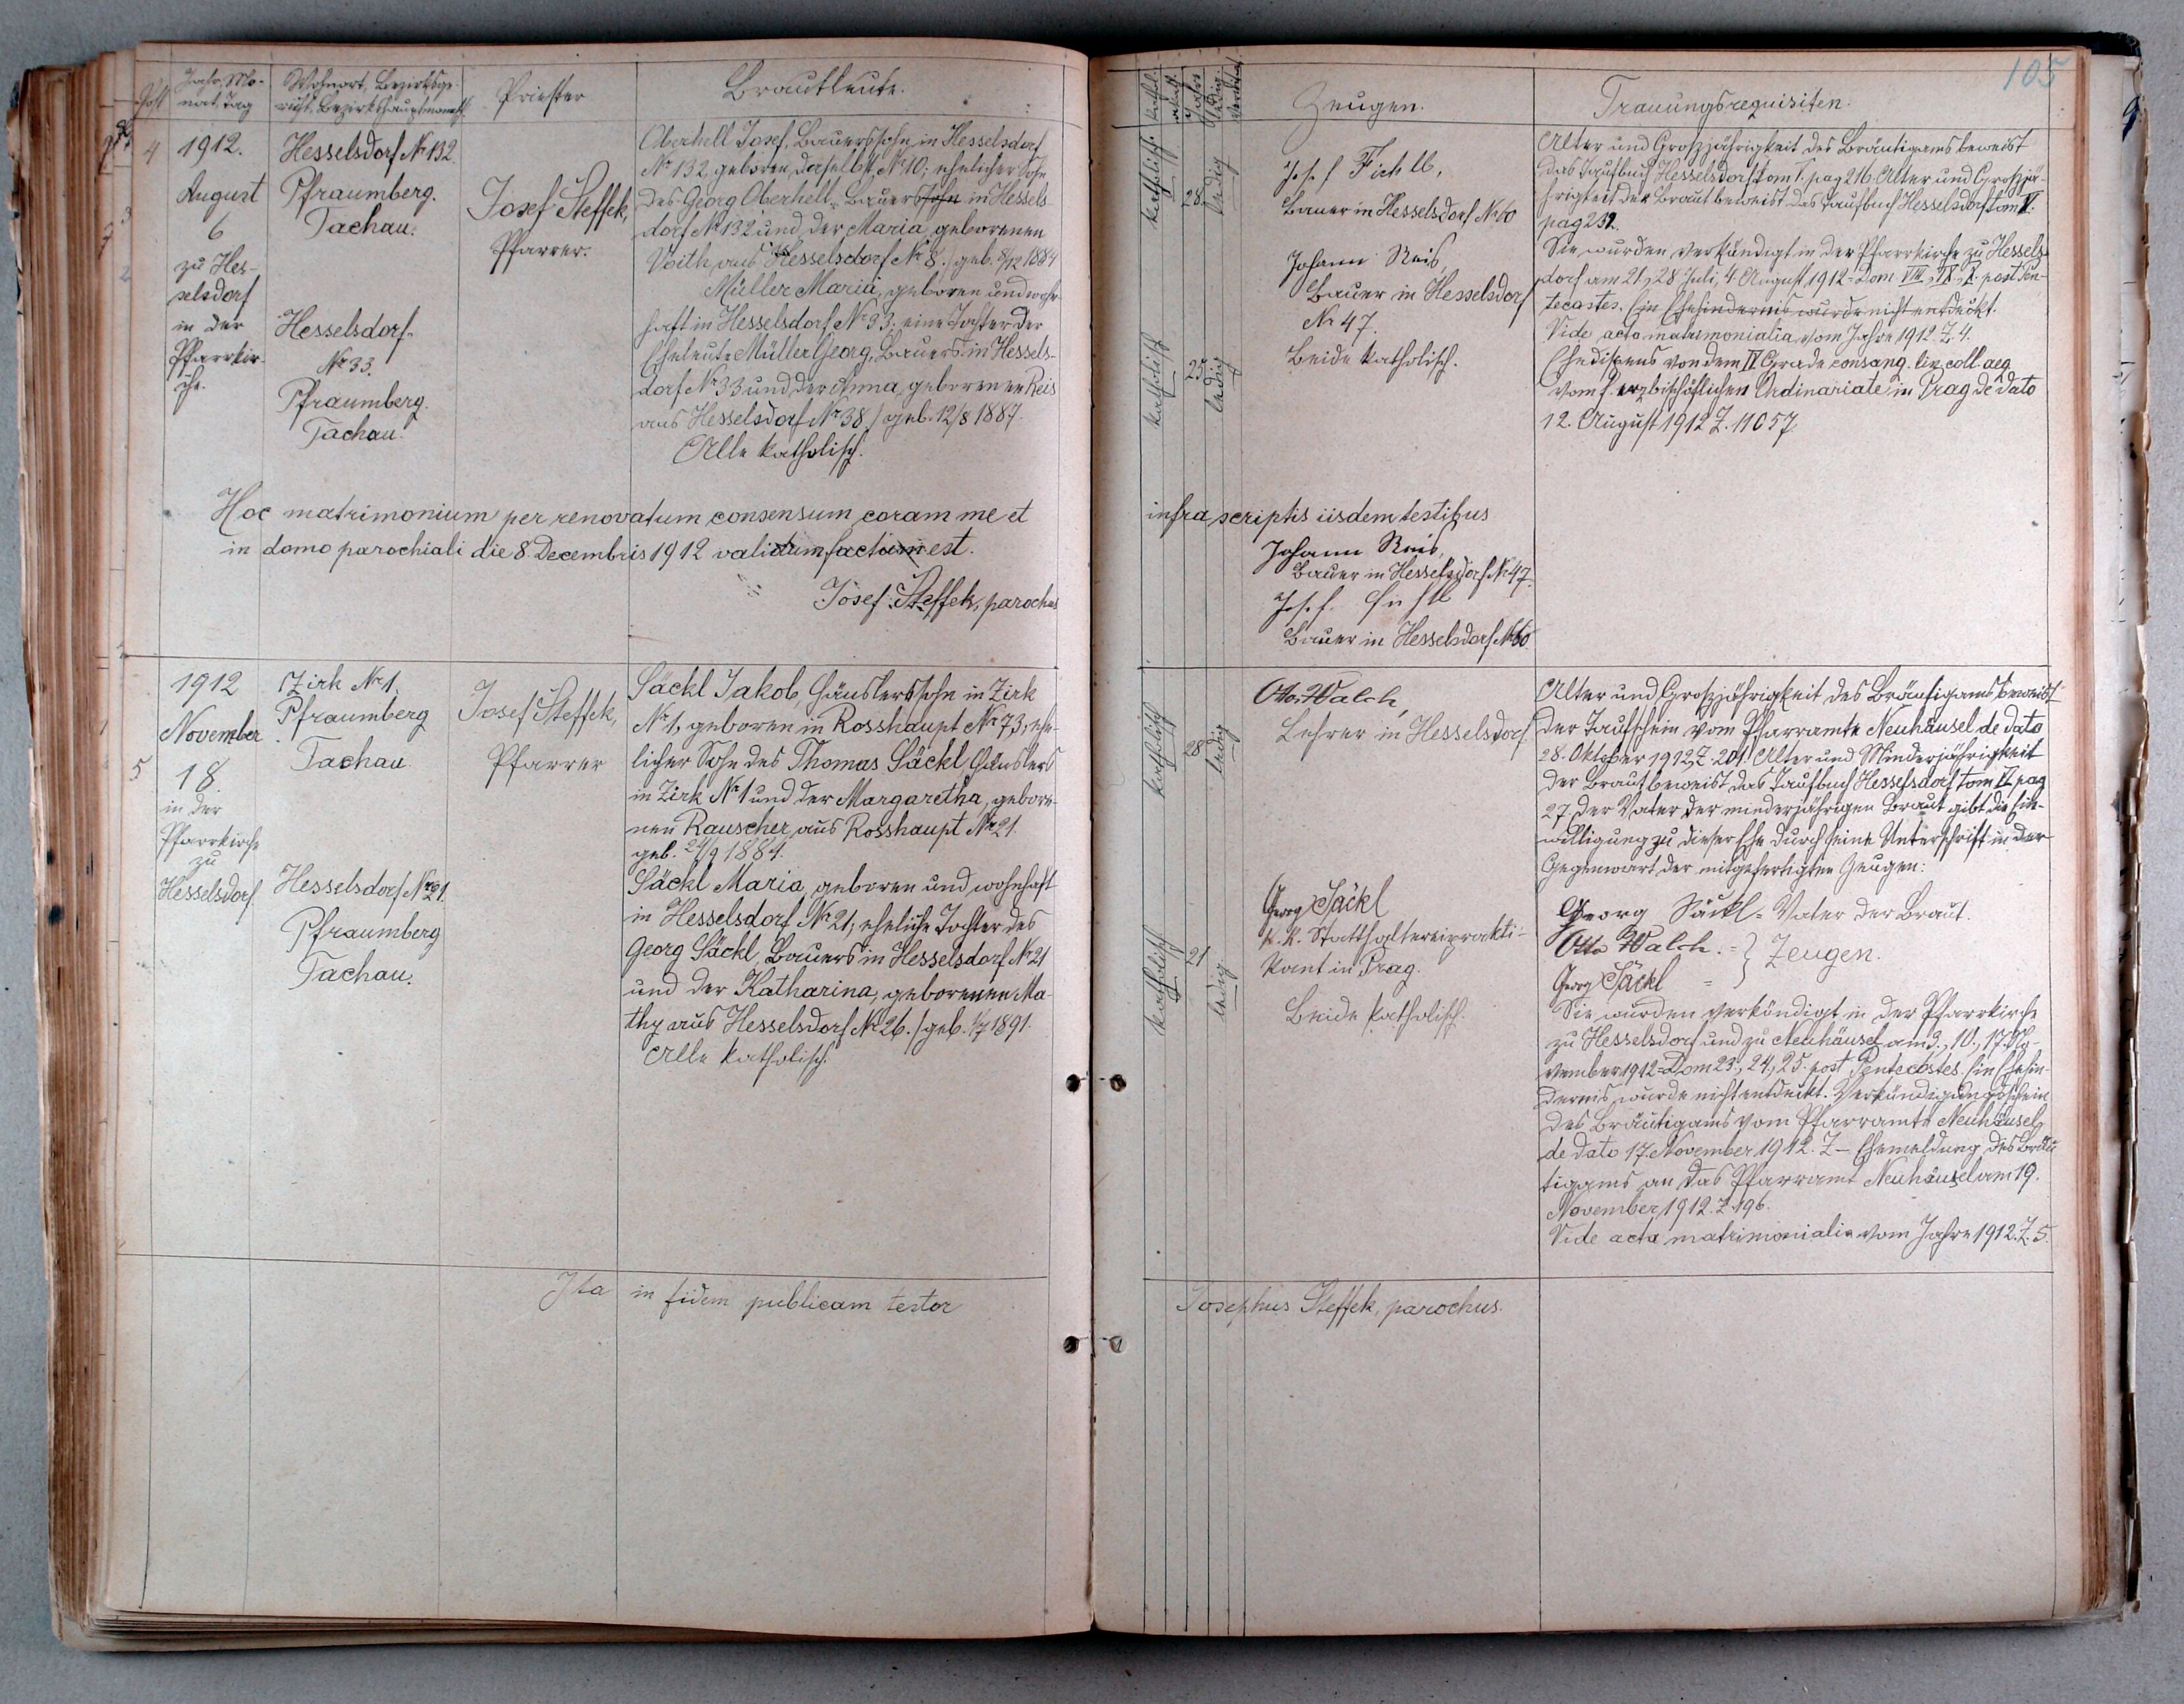 105
Post
Jahr, Mo-
nat, Tag
Wohnort, Bezirksge-
richt, Bezirkshauptmannsch.
Priester
Brautleute.
Zeugen.
Trauungsrequisiten.
4
1912.
August
6
zu Hes-
selsdorf
in der
Pfarrkir-
che.
Hesselsdorf No 132.
Pfraumberg.
Tachau.
Hesselsdorf
No 33.
Pfraumberg.
Tachau.
Josef Steffek,
Pfarrer.
Oberhell Josef, Bauerssohn in Hesselsdorf
No 132, geboren daselbst No 10; ehelicher Sohn
des Georg Oberhell, Bauerssohn in Hessels-
dorf No 132 und der Maria, geborenen
Voith, aus Hesselsdorf No 8. / geb. 8/12 1884
Müller Maria, geboren und wohn-
haft in Hesselsdorf No 33; eine Tochter der
Eheleute Müller Georg, Bauers in Hessels-
dorf No 33 und der Anna, geborenen Reis
aus Hesselsdorf No 38 / geb. 12/8 1887.
Alle katholisch.
katholisch
28
ledig
katholisch
25
ledig
Josef Fichtl,
Bauer in Hesselsdorf No 60
Johann Reis,
Bauer in Hesselsdorf
No 47.
Beide katholisch.
Alter und Großjährigkeit des Bräutigams beweist
das Taufbuch Hesselsdorf tom V. pag 216. Alter und Großjä-
hrigkeit der Braut beweist das Taufbuch Hesselsdorf tom V.
pag 252.
Sie wurden verkündigt in der Pfarrkirche zu Hessels-
dorf am 21., 28. Juli, 4. August 1912 = Dom VIII., IX., X. post Pen-
tecostes. Ein Ehehindernis wurde nicht entdeckt.
Vide acta matrimonialia vom Jahre 1912. Z. 4.
Ehedispens von dem IV Grade consang. lin. coll. aeq.
vom f. erzbischöflichen Ordinariate in Prag de dato
12. August 1912 Z. 11057.
Hoc matrimonium per renovatum consensum coram me et infra scriptis iisdem testibus
in domo parochiali die 8. Decembris 1912 validum factum est.
Josef Steffek, parochus
Johann Reis,
Bauer in Hesselsdorf No 47.
Josef Fichtl
Bauer in Hesselsdorf No 60
5
1912
November
18.
in der
Pfarrkirche
zu
Hesselsdorf
Zirk No 1.
Pfraumberg
Tachau
Hesselsdorf No 21.
Pfraumberg
Tachau.
Josef Steffek,
Pfarrer
Säckl Jakob, Häuslerssohn in Zirk
No 1, geboren in Rosshaupt No 73, ehe-
licher Sohn des Thomas Säckl, Häuslers
in Zirk No 1 und der Margaretha, gebore-
nen Rauscher, aus Rosshaupt No 21.
geb. 24/9 1884.
Säckl Maria, geboren und wohnhaft
in Hesselsdorf No 21; eheliche Tochter des
Georg Säckl, Bauers in Hesselsdorf No 21
und der Katharina, geborenen Ma-
thy aus Hesselsdorf No 26. / geb. 1/7 1891.
Alle katholisch.
katholisch
28
ledig
katholisch
21
ledig
Otto Walch,
Lehrer in Hesselsdorf
Georg Säckl
k. k. Statthaltereiprakti-
kant in Prag.
Beide katholisch.
Alter und Großjährigkeit des Bräutigams beweist
der Taufschein vom Pfarramte Neuhäusel de dato
28. Oktober 1912, Z. 201. Alter und Minderjährigkeit
der Braut beweist das Taufbuch Hesselsdorf tom VI. pag
27. Der Vater der minderjährigen Braut gibt die Ein-
willigung zu dieser Ehe durch seine Unterschrift in der
Gegenwart der mitgefertigten Zeugen:
Georg Säckl = Vater der Braut.
Otto Walch. = } Zeugen.
Georg Säckl =
Sie wurden verkündigt in der Pfarrkirche
zu Hesselsdorf und zu Neuhäusel am 3., 10., 17. No-
vember 1912 = Dom 23., 24., 25. post Pentecostes. Ein Ehehin-
dernis wurde nicht entdeckt. Verkündigungsschein
des Bräutigams vom Pfarramte Neuhäusel
de dato 17. November 1912. Z – Ehemeldung des Bräu-
tigams an das Pfarramt Neuhäusel am 19.
November 1912. Z. 196.
Vide acta matrimonialia vom Jahre 1912. Z. 5.
Ita in fidem publicam testor Josephus Steffek, parochus.